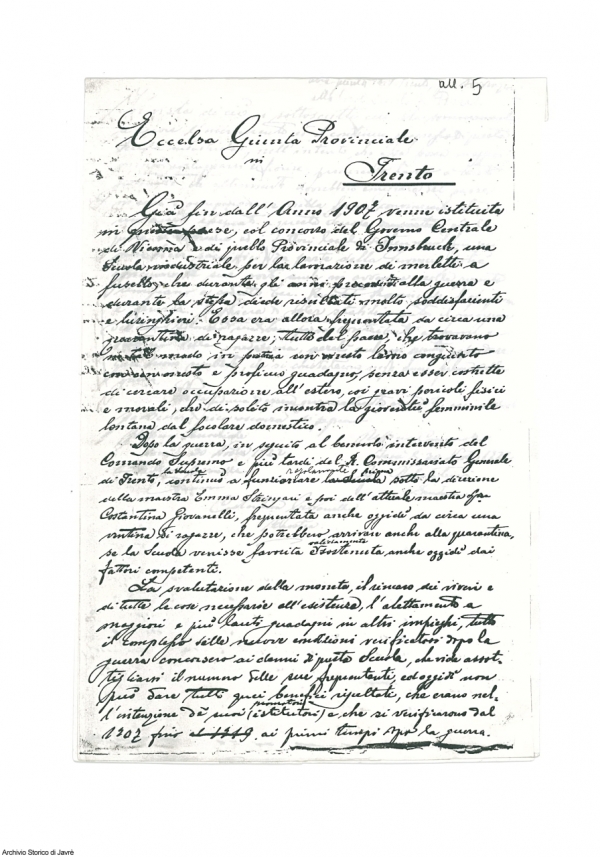 all. 5
Eccelsa Giunta Provinciale
in
Trento
Già fin dall'Anno 1907 venne istituita
in paese, col concorso del Governo Centrale
di Vienna e di quello Provinciale di Innsbruck, una
Scuola industriale per la lavorazione di merletti a
fuselli, che durante gli anni precedenti alla guerra e
durante la stessa diede risultati molto soddisfacenti
e lusinghieri. Essa era allora frequentata da circa una
quarantina di ragazze, tutte del paese, che trovavano
modo, in patria con questo lavoro congiunto
con un onesto e proficuo guadagno, senza esser costrette
di cercare occupazione all'estero, coi gravi pericoli fisici
e morali, che di solito incontra la gioventù femminile
lontana dal focolare domestico.
Dopo la guerra, in seguito al benevolo intervento del
Comando Supremo e più tardi del R. Commissariato Generale
di Trento, la Scuola continuò a funzionare regolarmente la Scuola sotto la direzione
della maestra Emma e poi dell'attuale maestra
Costantina Giovanelli, frequentata anche oggidì da circa una
ventina di ragazze, che potrebbero arrivare anche alla quarantina,
se la Scuola venisse favorita validamente sostenuta anche oggidì dai
fattori competenti.
La svalutazione della moneta, il rincaro dei viveri e
di tutte le cose necessarie all'esistenza, l'allettamento a
maggiori e più lauti guadagni in altri impieghi, tutto
il complesso delle nuove condizioni verificatesi dopo la
guerra concorsero ai danni di questa Scuola, che vide assot-
tigliarsi il numero delle sue frequentanti, ed oggidì non
può dare tutti quei benefici risultati, che erano nel-
l'intenzione dei suoi promotori (istitutori) e che si verificarono dal
1907 fino al 1919 ai primi tempi dopo la guerra.
Archivio Storico di Javrè